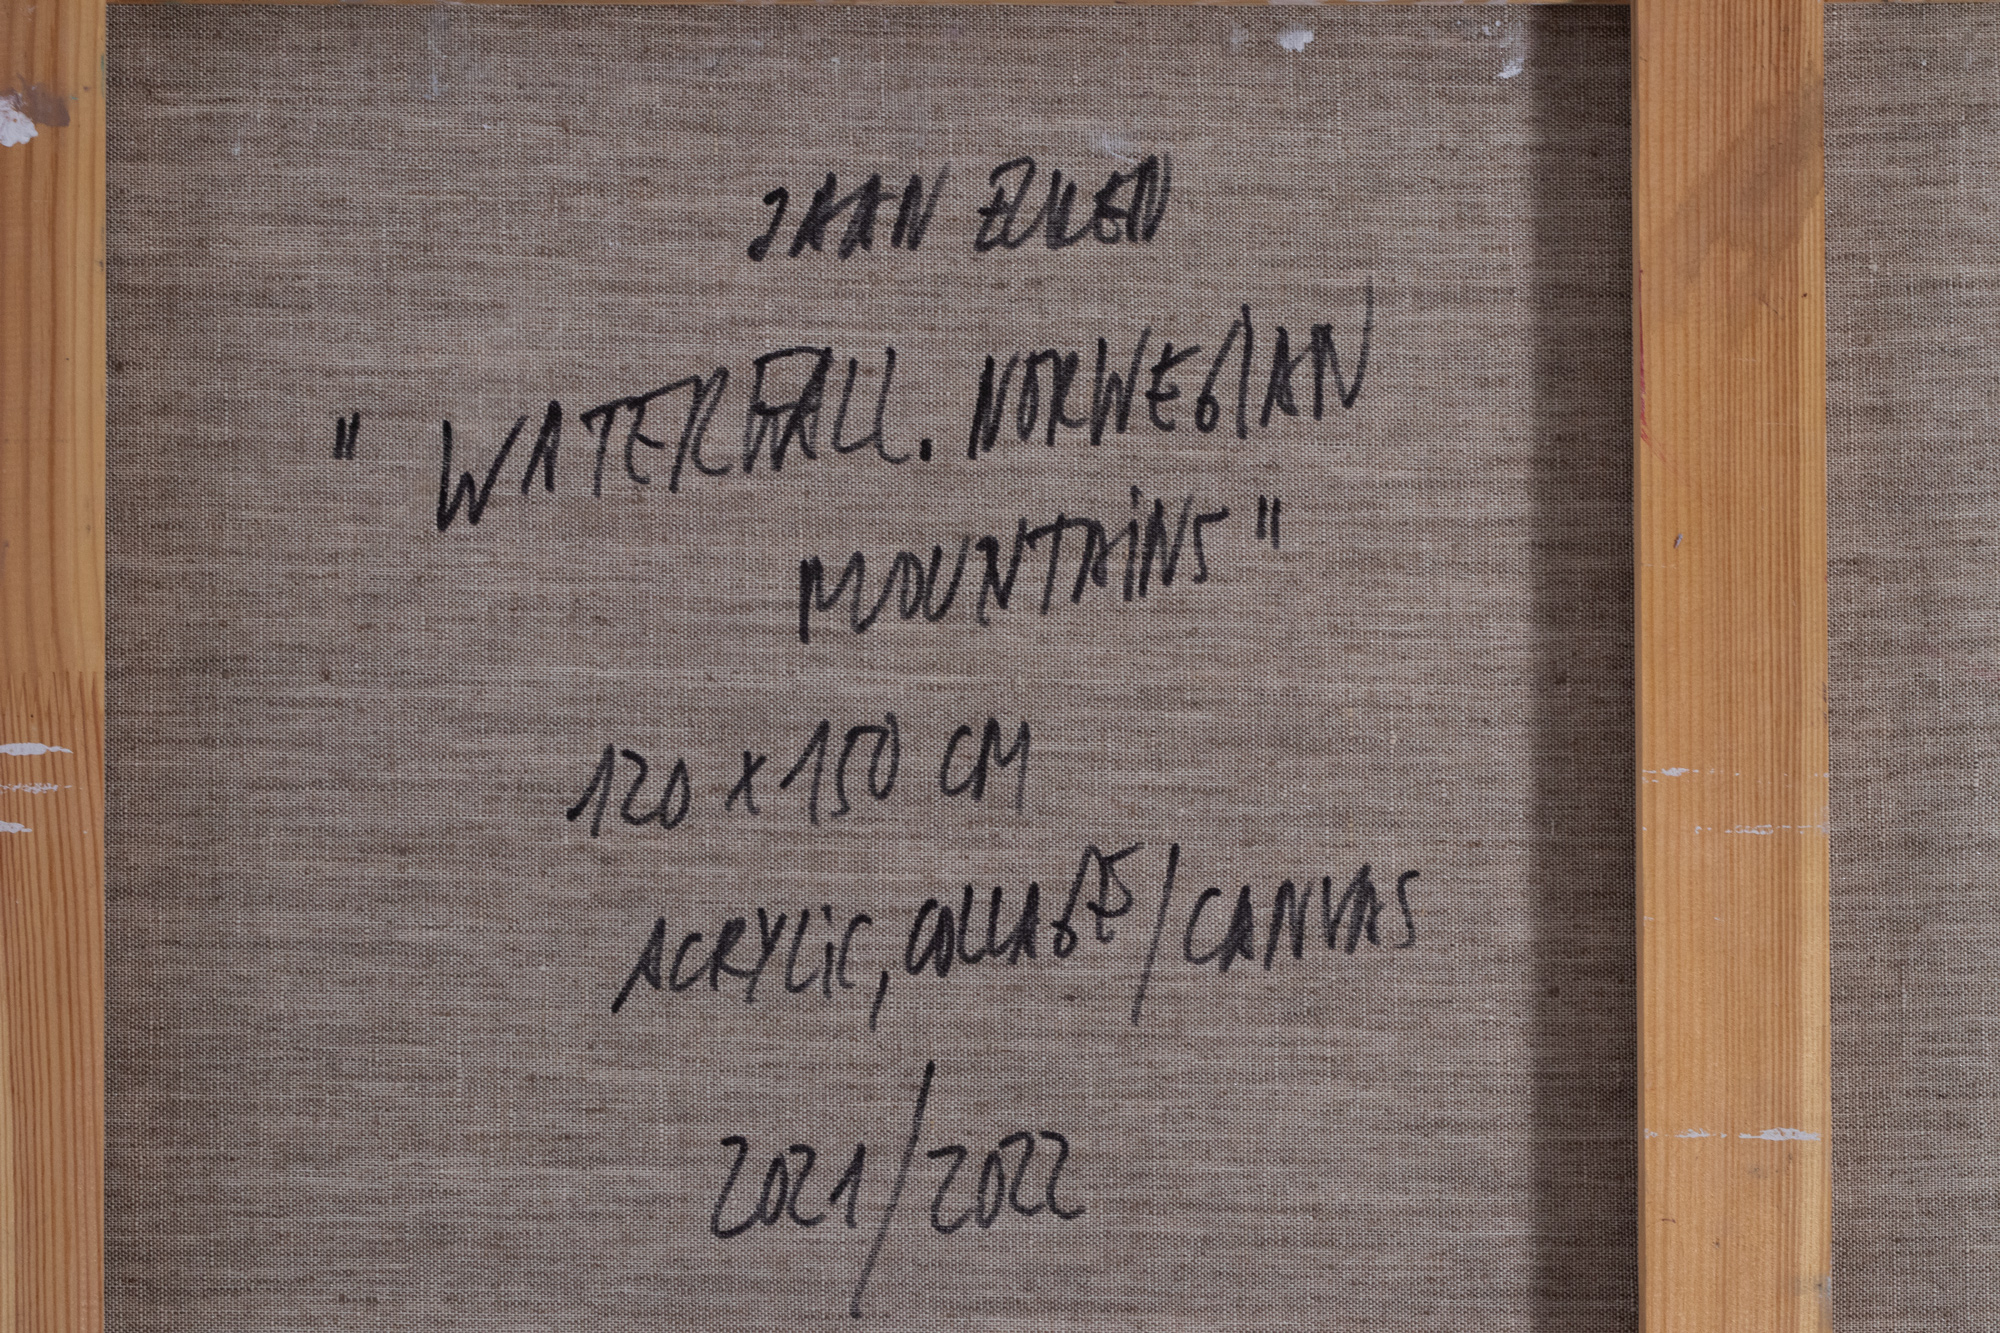 JAAN ELKEN
" WATERFALL. NORWEGIAN
MOUNTAINS "
120 x 150 CM
ACRYLIC, COLLAGE / CANVAS
2021/2022